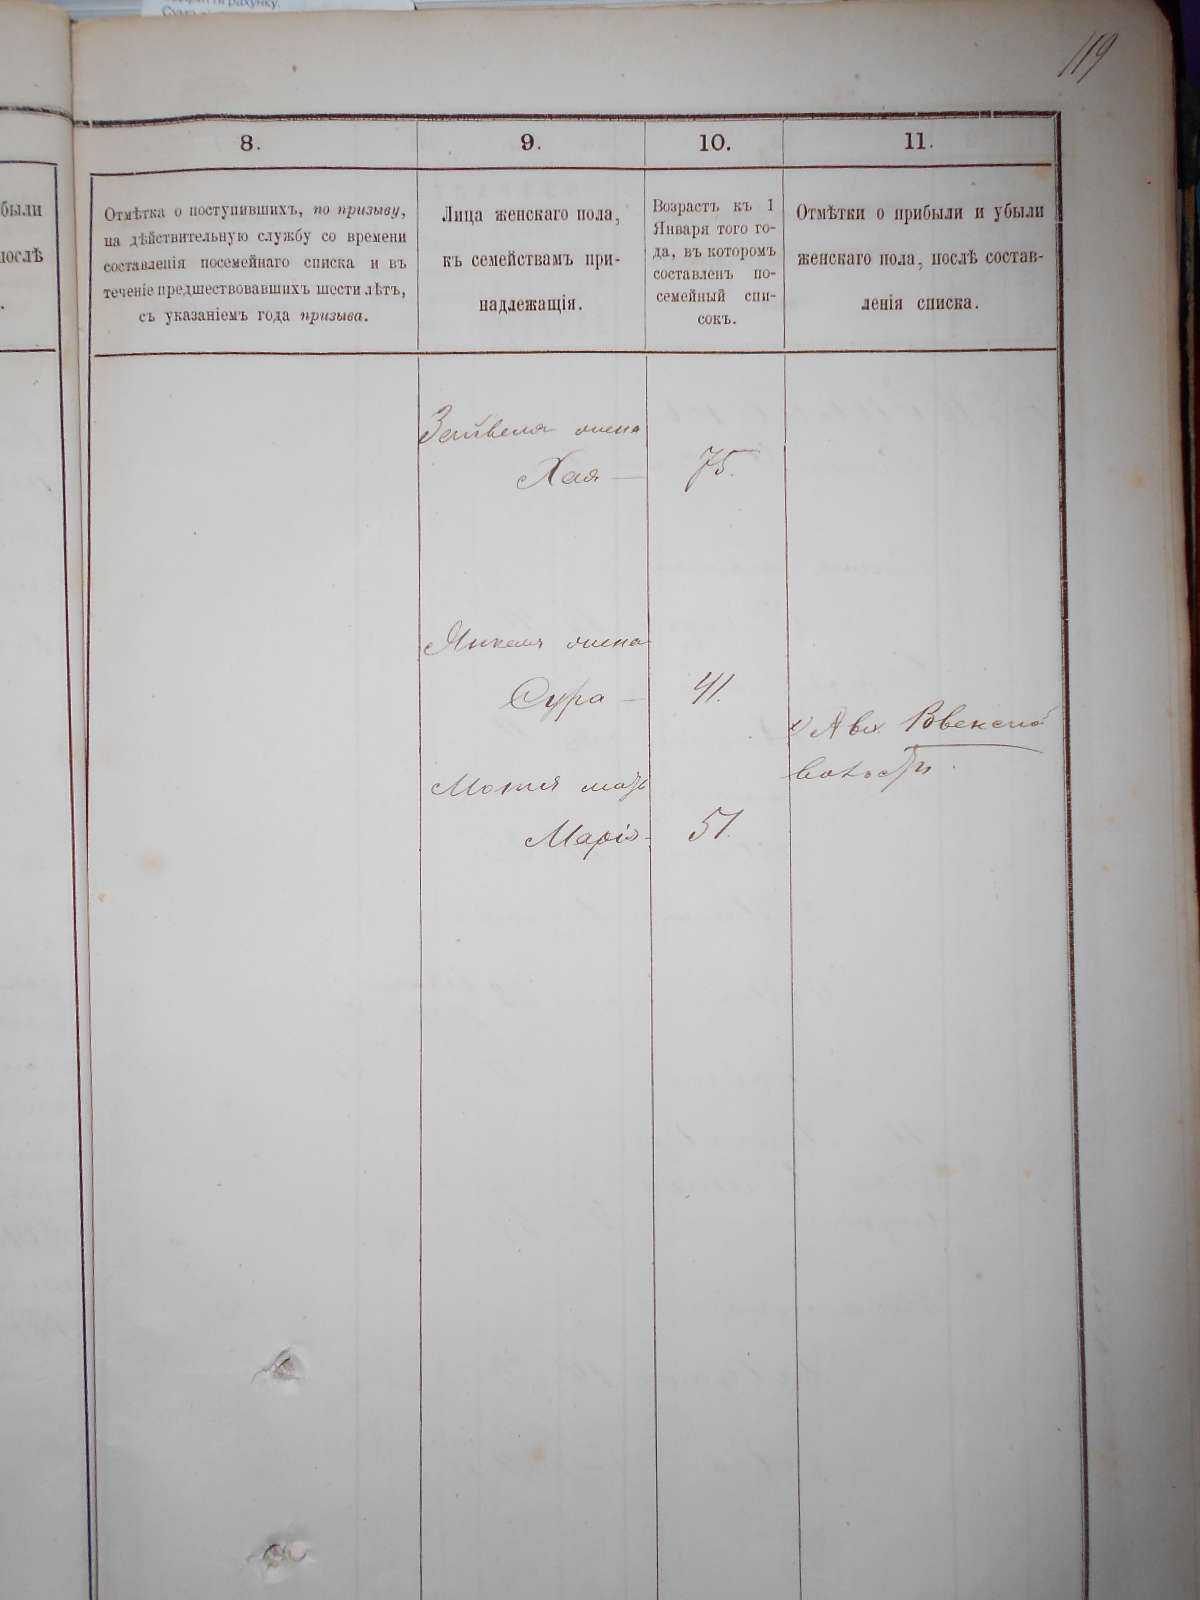 рахунку.
119
были
послѣ
8.
9.
10.
11.
Отмѣтка о поступившихъ, по призыву,
на дѣйствительную службу со времени
составленія посемейнаго списка и въ
теченіе предшествовавшихъ шести лѣтъ,
съ указаніемъ года призыва.
Лица женскаго пола,
къ семействамъ при-
надлежащія.
Возрастъ къ 1
Января того го-
да, въ которомъ
составленъ по-
семейный спи-
сокъ.
Отмѣтки о прибыли и убыли
женскаго пола, послѣ состав-
ленія списка.
Зейвеля жена
Хая — 75.
Янкеля жена
Сура — 41.
Ровенской
волости.
Мошка мать
Марія - 51.